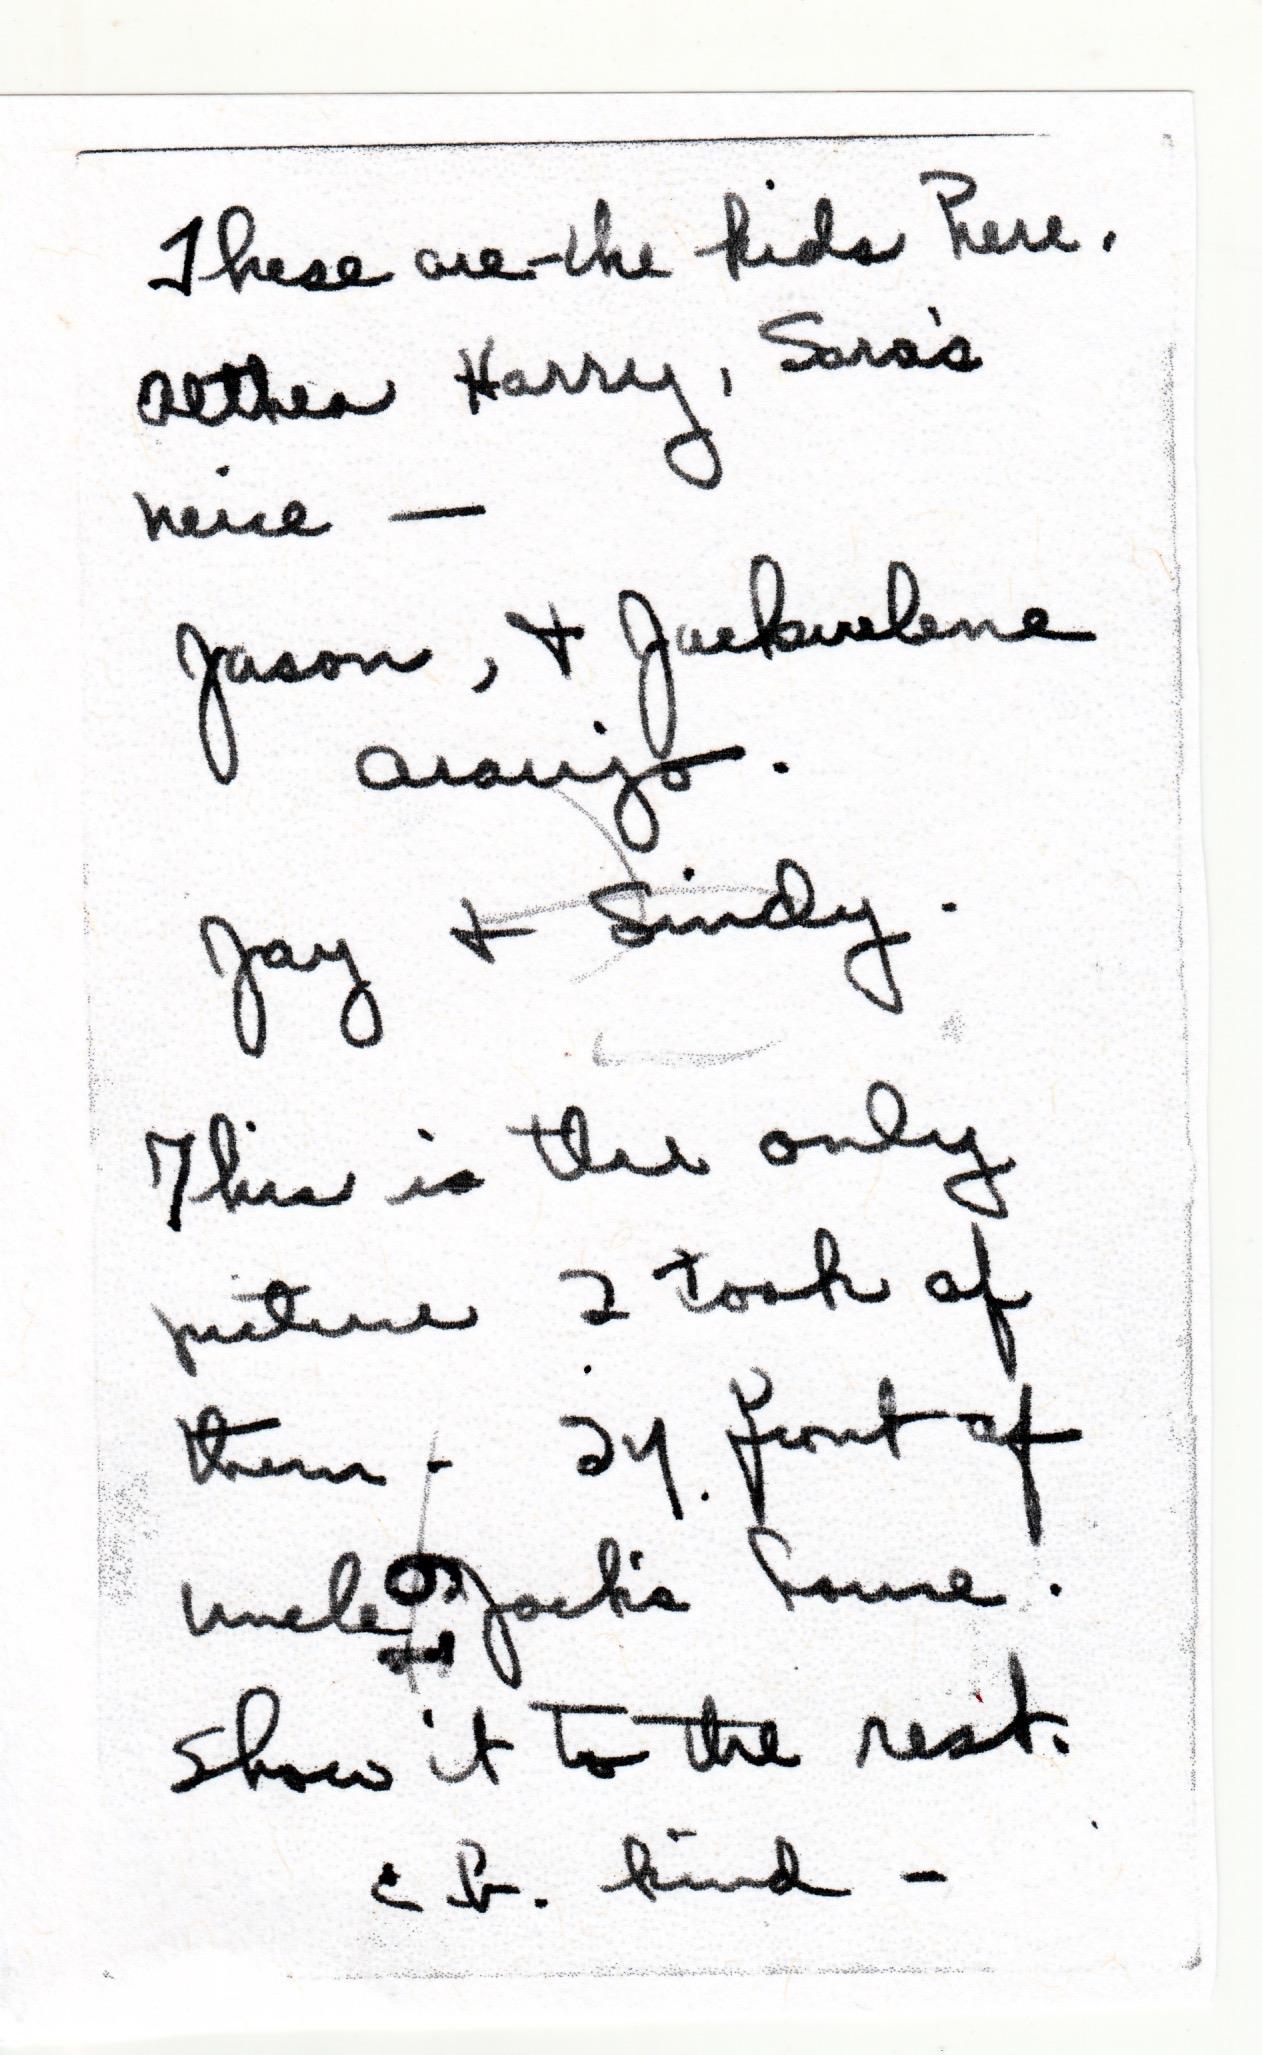 These are the kids here.
Althea Harry, Sara's
neice —
Jason, + Jackuelene
Araujo.
Jay + Sindy.
This is the only
picture I took of
them - In front of
Uncle Jack's house.
Show it to the rest.
kind -